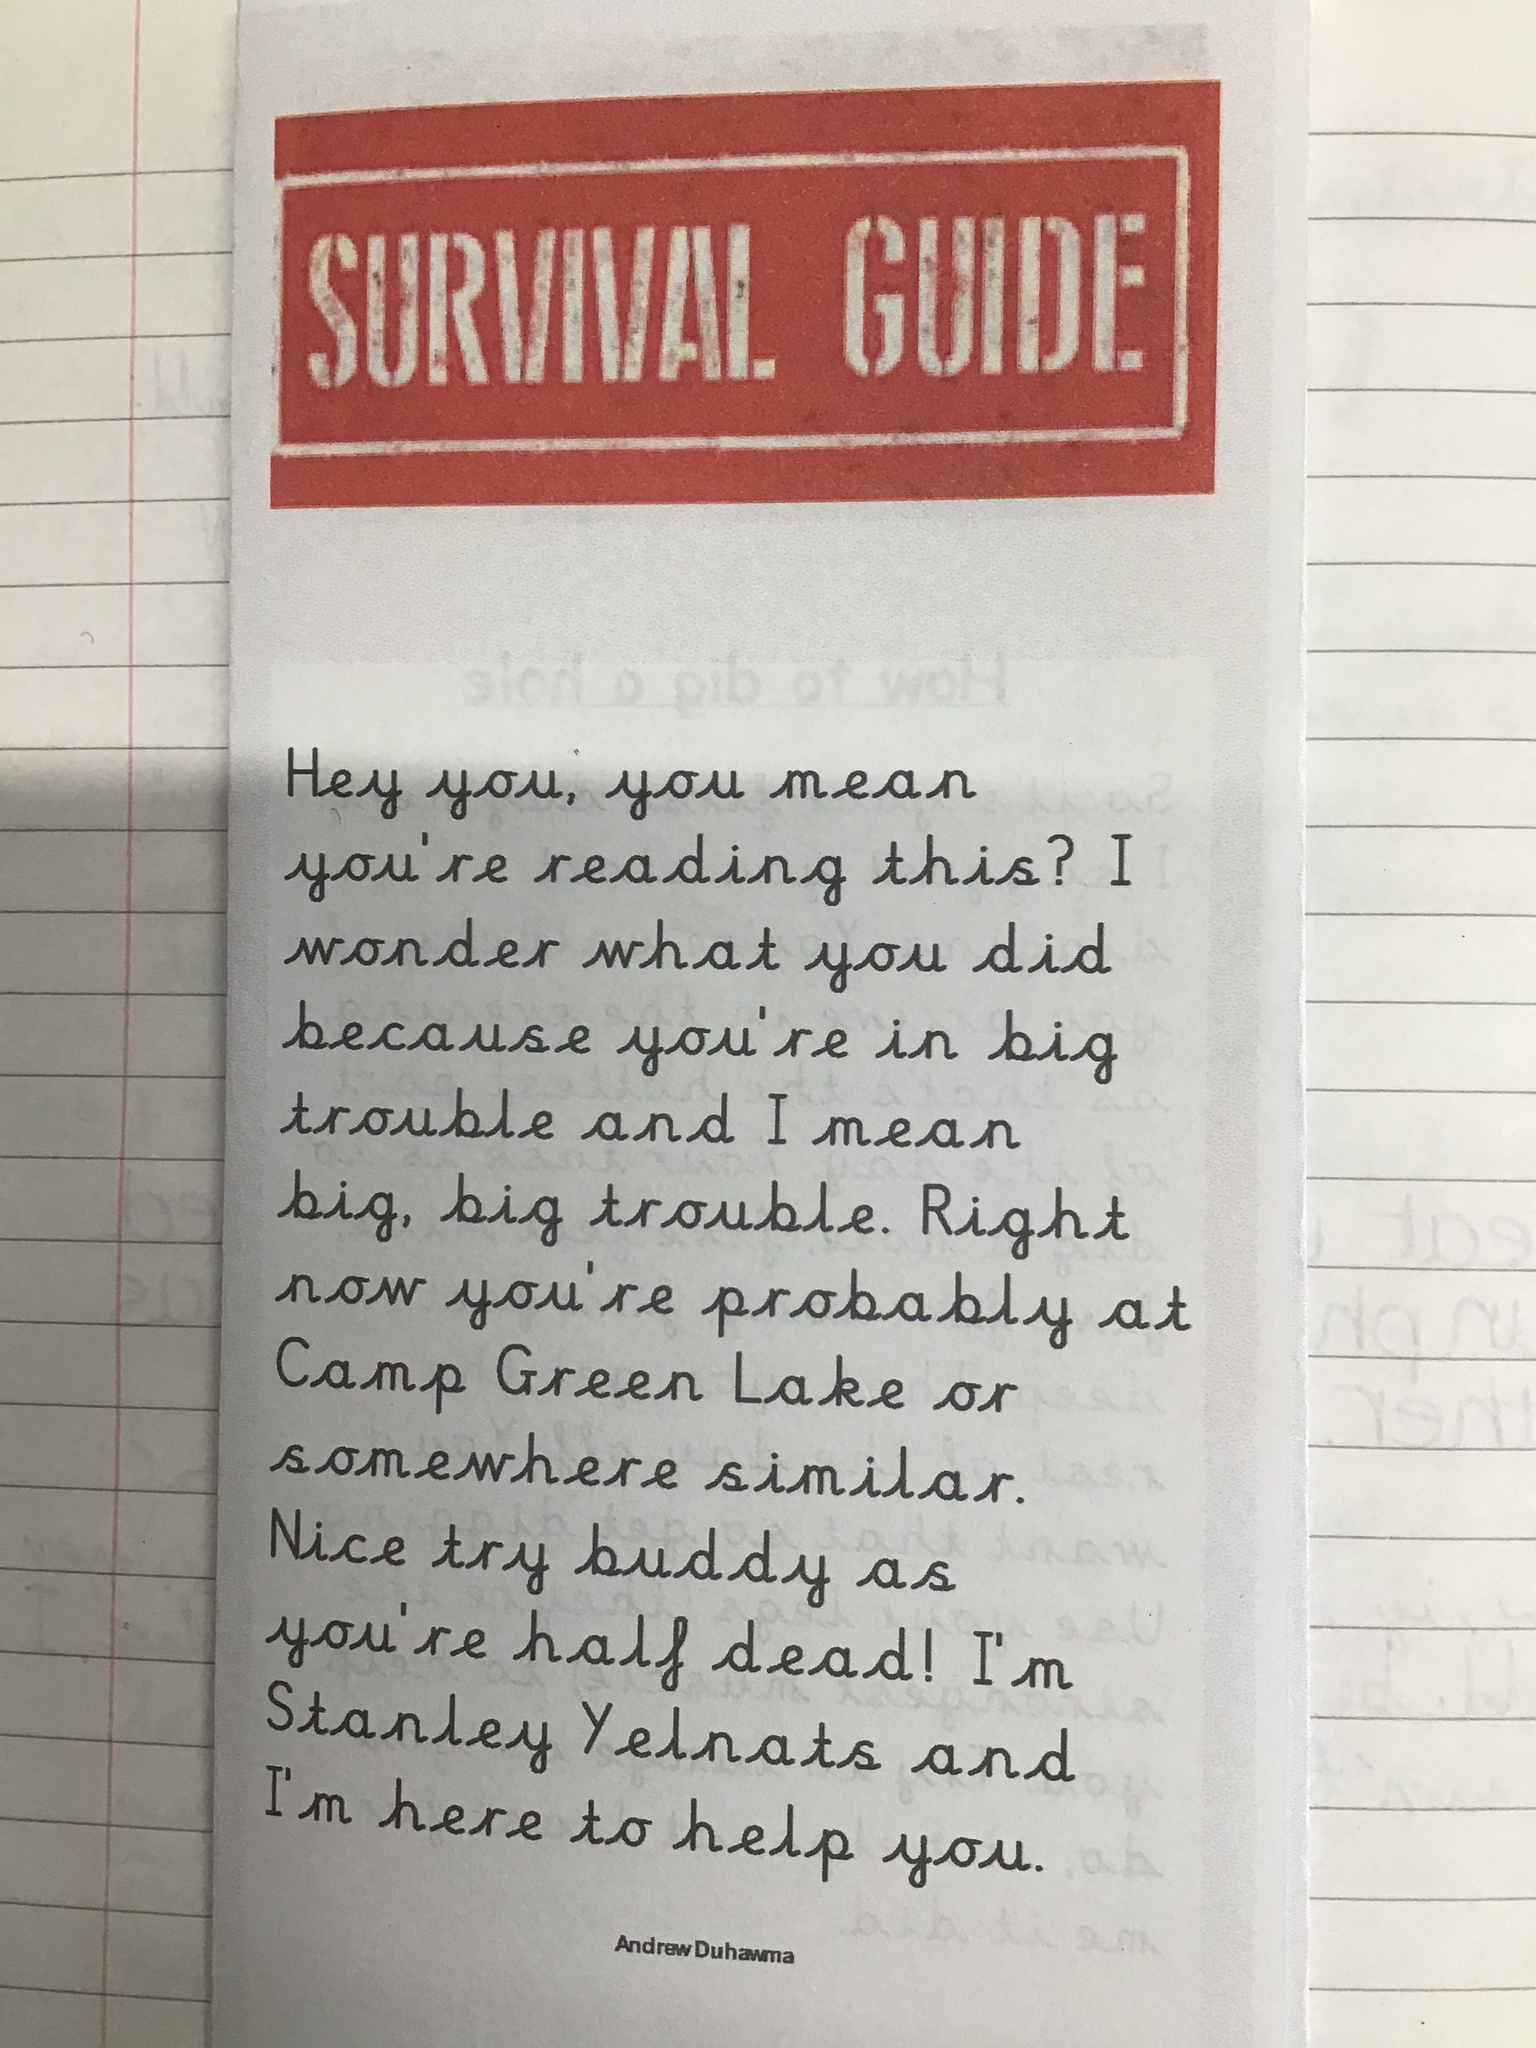 SURVIVAL GUIDE
How to dig a hole
Hey you, you mean
you're reading this? I
wonder what you did
because you're in big
trouble and I mean
big, big trouble. Right
now you're probably at
Camp Green Lake or
somewhere similar.
Nice try buddy as
you're half dead! I'm
Stanley Yelnats and
I'm here to help you.
Andrew Duhawma